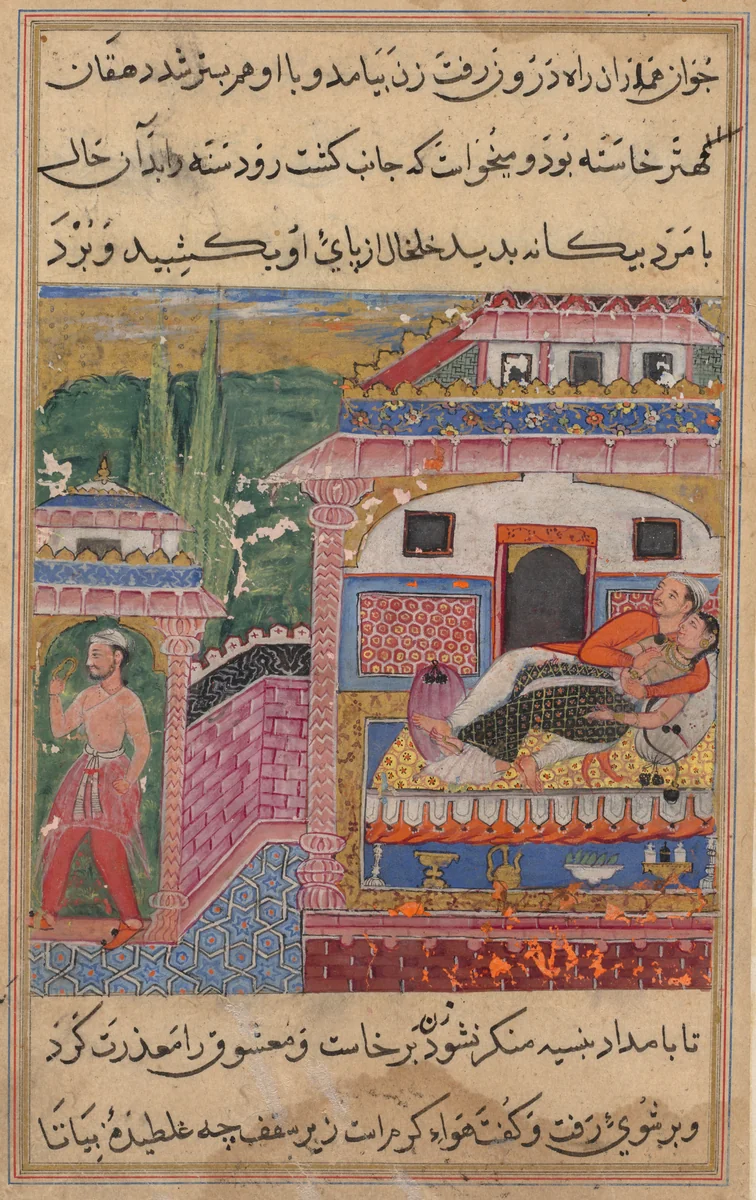 جوان همدران راه درون رفت زن بیامد و با او هم بستر شد دهقان
مهتر خاسته بود و میخواست که جانب کشت رود سته را بدان حال
با مرد بیکانه بدید خلخال از پای او بکشید و ببرد
تا بامداد منکر نشود زن برخاست و معشوق را معذرت کرد
و بر شوی رفت و کفت هواء کرم است زیر سقف چه غلطیدۀ بیا تا